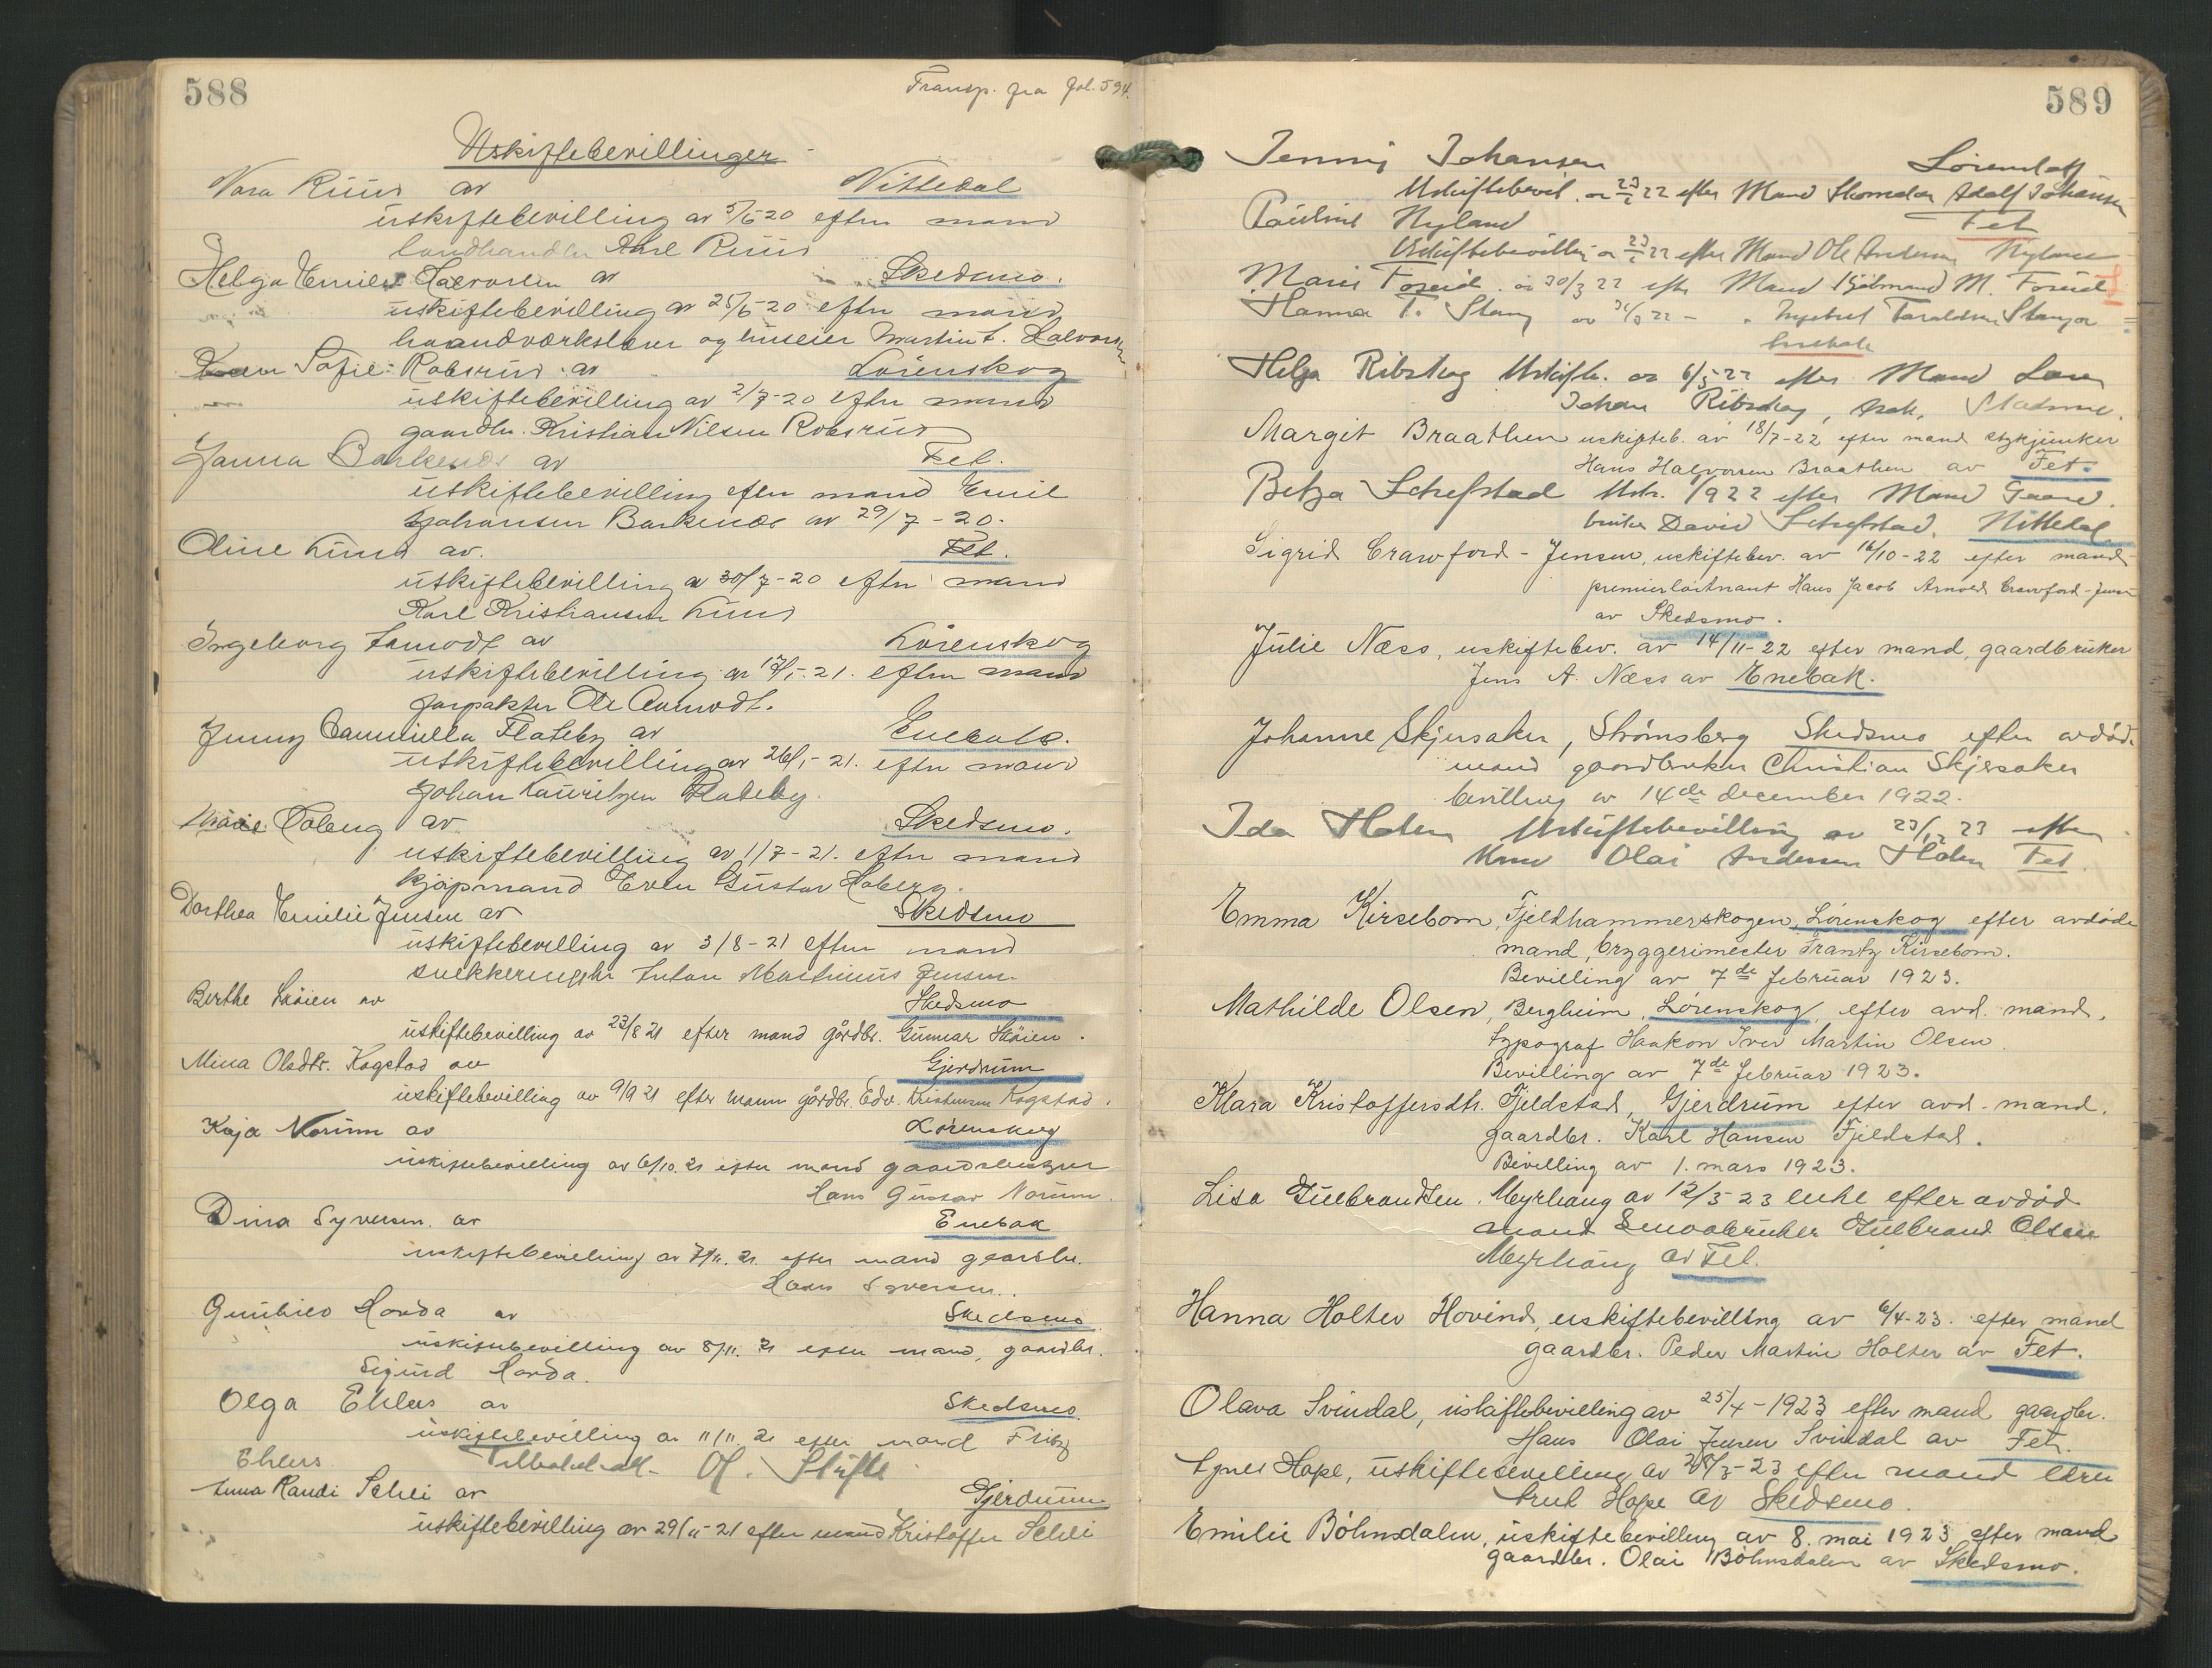 588
Transp. fra fol. 594.
Uskiftebevillinger
Nara Ruus av Nittedal
uskiftebevilling av 5/6 20 efter mand
landhandler Ruus
Helga Emilie Halvorsen av Skedsmo.
uskiftebevilling av 25/6-20 efter mand
haandværksløver og huseier Martin L. Halvorsen
Sofie Robsrud av Lørenskog
uskiftebevilling av 2/7-20 efter mand
gaardbr. Kristian Nilsen Robsrud
Janna Barkenæs av Fet.
uskiftebevilling efter mand Emil
Johansen Barkenæs av 29/7-20.
Oline Lund av. Fet.
uskiftebevilling a 30/7-20 efter mand
Karl Kristiansen Lund
Ingeborg av Lørenskog
uskiftebevilling av 17/1-21. efter mand
forpakter Ole Aamodt.
Jenny Camilla Flateby av Enebak.
uskiftebevilling av 26/1-21. efter mand
Johan Lauritzen Flateby.
Marie Hoberg av Skedsmo.
uskiftebevilling av 1/7-21. efter mand
kjøpmand Even Gustav Hoberg.
Dorthea Emilie Jensen av Skedsmo
uskiftebevilling av 3/8-21 efter mand
snekkermester Anton Martinius Jensen
Berthe Skøien av Skedsmo
uskiftebevilling av 23/8 21 efter mand gårdbr. Gunnar Skøien.
Mina Olsdtr. Kogstad av Gjerdrum
uskiftebevilling av 9/9 21 efter mann gårdbr. Edv. Kristensen Kogstad.
Kaja Norum av Lørenskog
uskiftebevilling av 6/10.21 efter mand gaardbruker
Hans Gustav Norum.
Dina Syversen. av Enebak
uskiftebevilling av 7/11.21. efter mand gaardbr.
Hans Syversen.
Gunhild Horda av Skedsmo
uskiftebevilling av 8/11.21 efter mand, gaardbr.
Sigurd Horda.
Olga Ehlers av Skedsmo
uskiftebevilling av 11/11.21 efter mand Fritz
Ehlers Tilbakekalt. Off. Skifte
Anna Randi Schei av Gjerdrum
uskiftebevilling av 29/11-21 efter mand Kristoffer Schei
589
Jenny Johansen Lørenskog
Uskiftebevil. av 23/2 22 efter Mand Skomaker Adolf Johansen
Pauline Nyland Fet
Uskiftebevilling av 23/2 22 efter Mand Ole Andersen Nyland
Marie Foseid av 30/3 22 efter Mand Kjøbmand M. Foseid
Hanna T. Stang av 31/3 22 - " Taraldsen Stang av
Enebak
Helga Ribskog Uskifte. av 6/5 22 efter Mand Lars
Johan Ribskog, Ark. Skedsmo.
Margit Braathen uskifteb. av 18/7-22 efter mand stykjunker
Hans Halvorsen Braathen av Fet.
Betza Schefstad Usk. 1922 efter Mand Gaard
bruker David Schefstad. Nittedal
Sigrid Crawford-Jensen, uskiftebev. av 16/10-22 efter mand
premierløitnant Hans Jacob Arnold Crawford-Jensen
av Skedsmo.
Julie Næss, uskiftebev. av 14/11-22 efter mand, gaardbruker
Jens A. Næss av Enebak.
Johanne Skjersaker, Strømsberg Skedsmo efter avdød.
mand gaardbruker Christian Skjersaker
bevilling av 14de december 1922.
Ida Holen Uskiftebevilling av 23/12 23 efter
Mand Olai Andersen Holen Fet.
Emma Kirsebom, Fjeldhammerskogen, Lørenskog efter avdøde
mand, bryggerimester Frantz Kirsebom.
Bevilling av 7de februar 1923.
Mathilde Olsen, Bergheim, Lørenskog, efter avd. mand,
typograf Haakon Iver Martin Olsen.
Bevilling av 7de februar 1923.
Klara Kristoffersdtr. Fjeldstad, Gjerdrum efter avd. mand.
gaardbr. Karl Hansen Fjeldstad.
Bevilling av 1. mars 1923.
Lisa Gulbrandsen. Myrhaug av 12/3-23 enke efter avdød
mand Smaabruker Gulbrand Olsen
Myrhaug av Fet.
Hanna Holter Hovind, uskiftebevilling av 6/4-23. efter mand
gaardbr. Peder Martin Holter av Fet.
Olava Svindal, uskiftebevilling av 25/4-1923 efter mand gaardbr.
Hans Olai Jensen Svindal av Fet.
Agnes Hope, uskiftebevilling av 28/3-23 efter mand
Hope av Skedsmo.
Emilie Bøhnsdalen, uskiftebevilling av 8. mai 1923 efter mand
gaardbr. Olai Bøhnsdalen av Skedsmo.